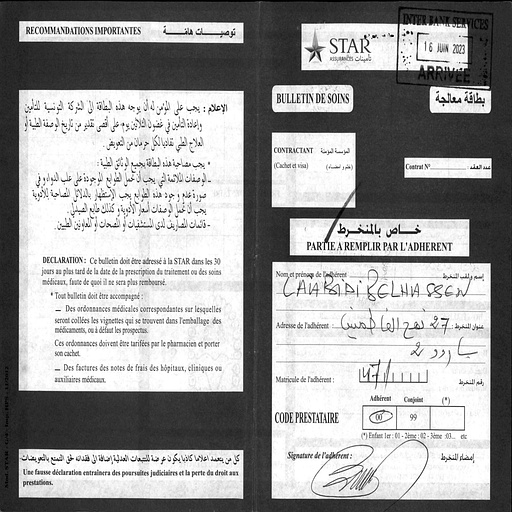 RECOMMANDATIONS IMPORTANTES
توصيـــات هامـــة
الإعلام : يجب على المؤمن له أن يوجه هذه البطاقة الى الشركة التونسية للتأمين
وإعادة التأمين في غضون الثلاثين يوم على أقصى تقدير من تاريخ الوصفة الطبية أو
العلاج الطبي تفاديا لكل حرمان من التعويض.
* يجب مصاحبة هذه البطاقة بجميع الوثائق الطبية :
- الوصفات الملائمة التي يجب أن تحمل الطوابع الموجودة على علب الدواء وفي
صورة عدم وجود هذه الطوابع يجب الإستظهار بالدلائل المصاحبة للأدوية
يجب أن تحمل الوصفات أسعار الأدوية وكذلك طابع الصيدلي.
- قائمات المصاريف لدى المستشفيات أو المصحات أو المعاونين الطبيين.
DECLARATION : Ce bulletin doit être adressé à la STAR dans les 30
jours au plus tard de la date de la prescription du traitement ou des soins
médicaux, faute de quoi il ne sera plus remboursé.
* Tout bulletin doit être accompagné :
— Des ordonnances médicales correspondantes sur lesquelles
seront collées les vignettes qui se trouvent dans l'emballage des
médicaments, ou à défaut les prospectus.
Ces ordonnances doivent être tarifées par le pharmacien et porter
son cachet.
— Des factures des notes de frais des hôpitaux, cliniques ou
auxiliaires médicaux.
كل من يتعمد اعلاما كاذبا يكون عرضة للتتبعات العدلية إضافة الى فقدانه حق التمتع بالتعويضات
Une fausse déclaration entraînera des poursuites judiciaires et la perte du droit aux
prestations.
INTER BANK SERVICES
16 JUIN 2023
ARRIVÉE
STAR
ASSURANCES تأمينات
BULLETIN DE SOINS
بطاقة معالجة
CONTRACTANT
المؤسسة المؤمنة
(Cachet et visa)
(ختم و امضاء)
Contrat N°
عدد العقد
خــاص بالمنخــرط
PARTIE A REMPLIR PAR L'ADHERENT
Nom et prénom de l'adhérent
إسم ولقب المنخرط
LAABIDI BELHASSEN
Adresse de l'adhérent :
27 نهج الفاطميين
عنوان المنخرط :
باردو 2
Matricule de l'adhérent :
147
رقم المنخرط
Adhérent Conjoint (*)
CODE PRESTATAIRE
00 99
(*) Enfant 1er : 01 - 2ème : 02 - 3ème :03... etc
Signature de l'adhérent :
إمضاء المنخرط